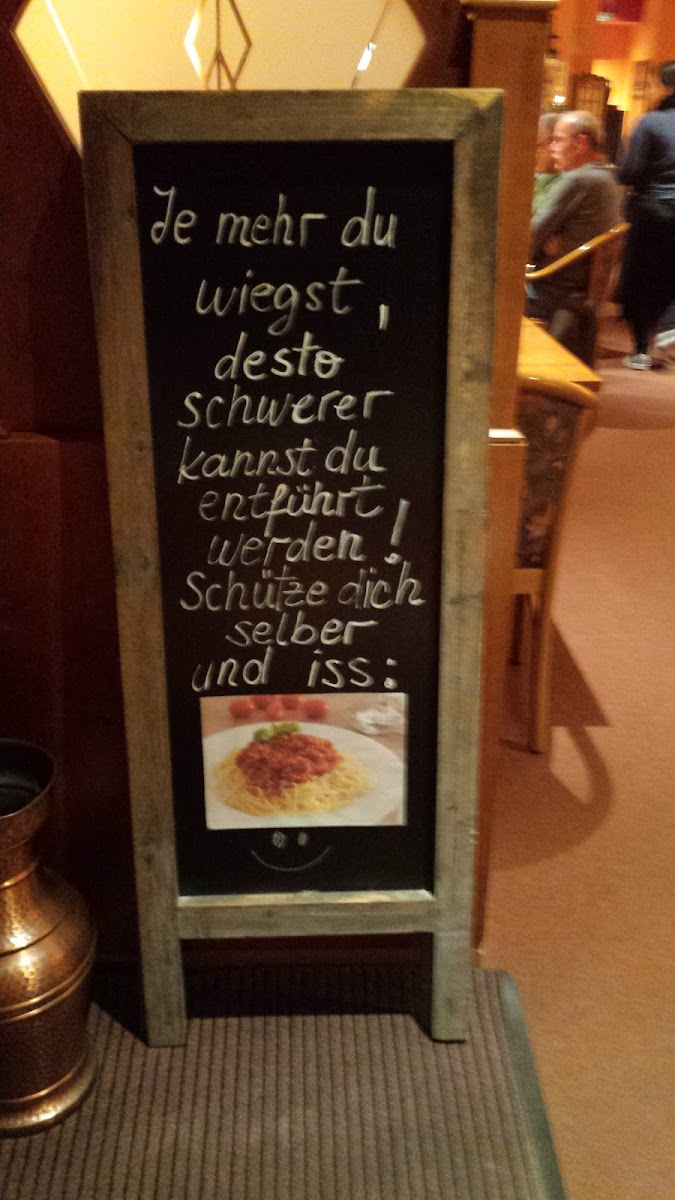 Je mehr du
wiegst,
desto
schwerer
kannst du
entführt
werden!
Schütze dich
selber
und iss: